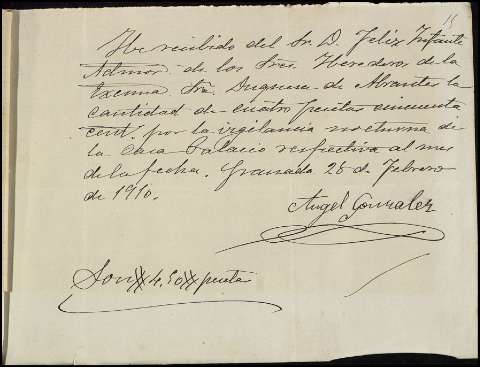 15
He recibido del Sr. D. Feliz Infante
Admor. de los Sres. Herederos de la
Excma. Sra. Duquesa de Abrantes la
cantidad de cuatro pesetas cincuenta
cent.s por la vigilancia nocturna de
la Casa Palacio respectiva al mes
de la fecha. Granada 28 d. Febrero
de 1910.
Angel Gonzalez
Son 4,50 pesetas